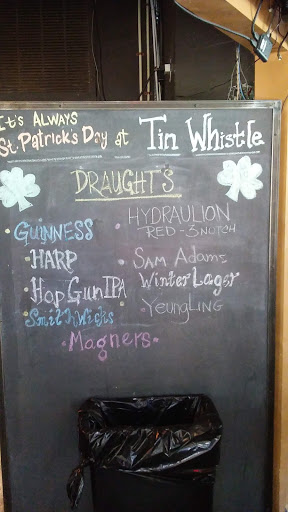 It's ALWAYS
St. Patrick's Day at Tin Whistle
DRAUGHT'S
GUINNESS
HARP
Hop Gun IPA
Smithwicks
Magners
HYDRAULION
RED - 3 NOTCH
SAM Adams
Winter Lager
YeungLING